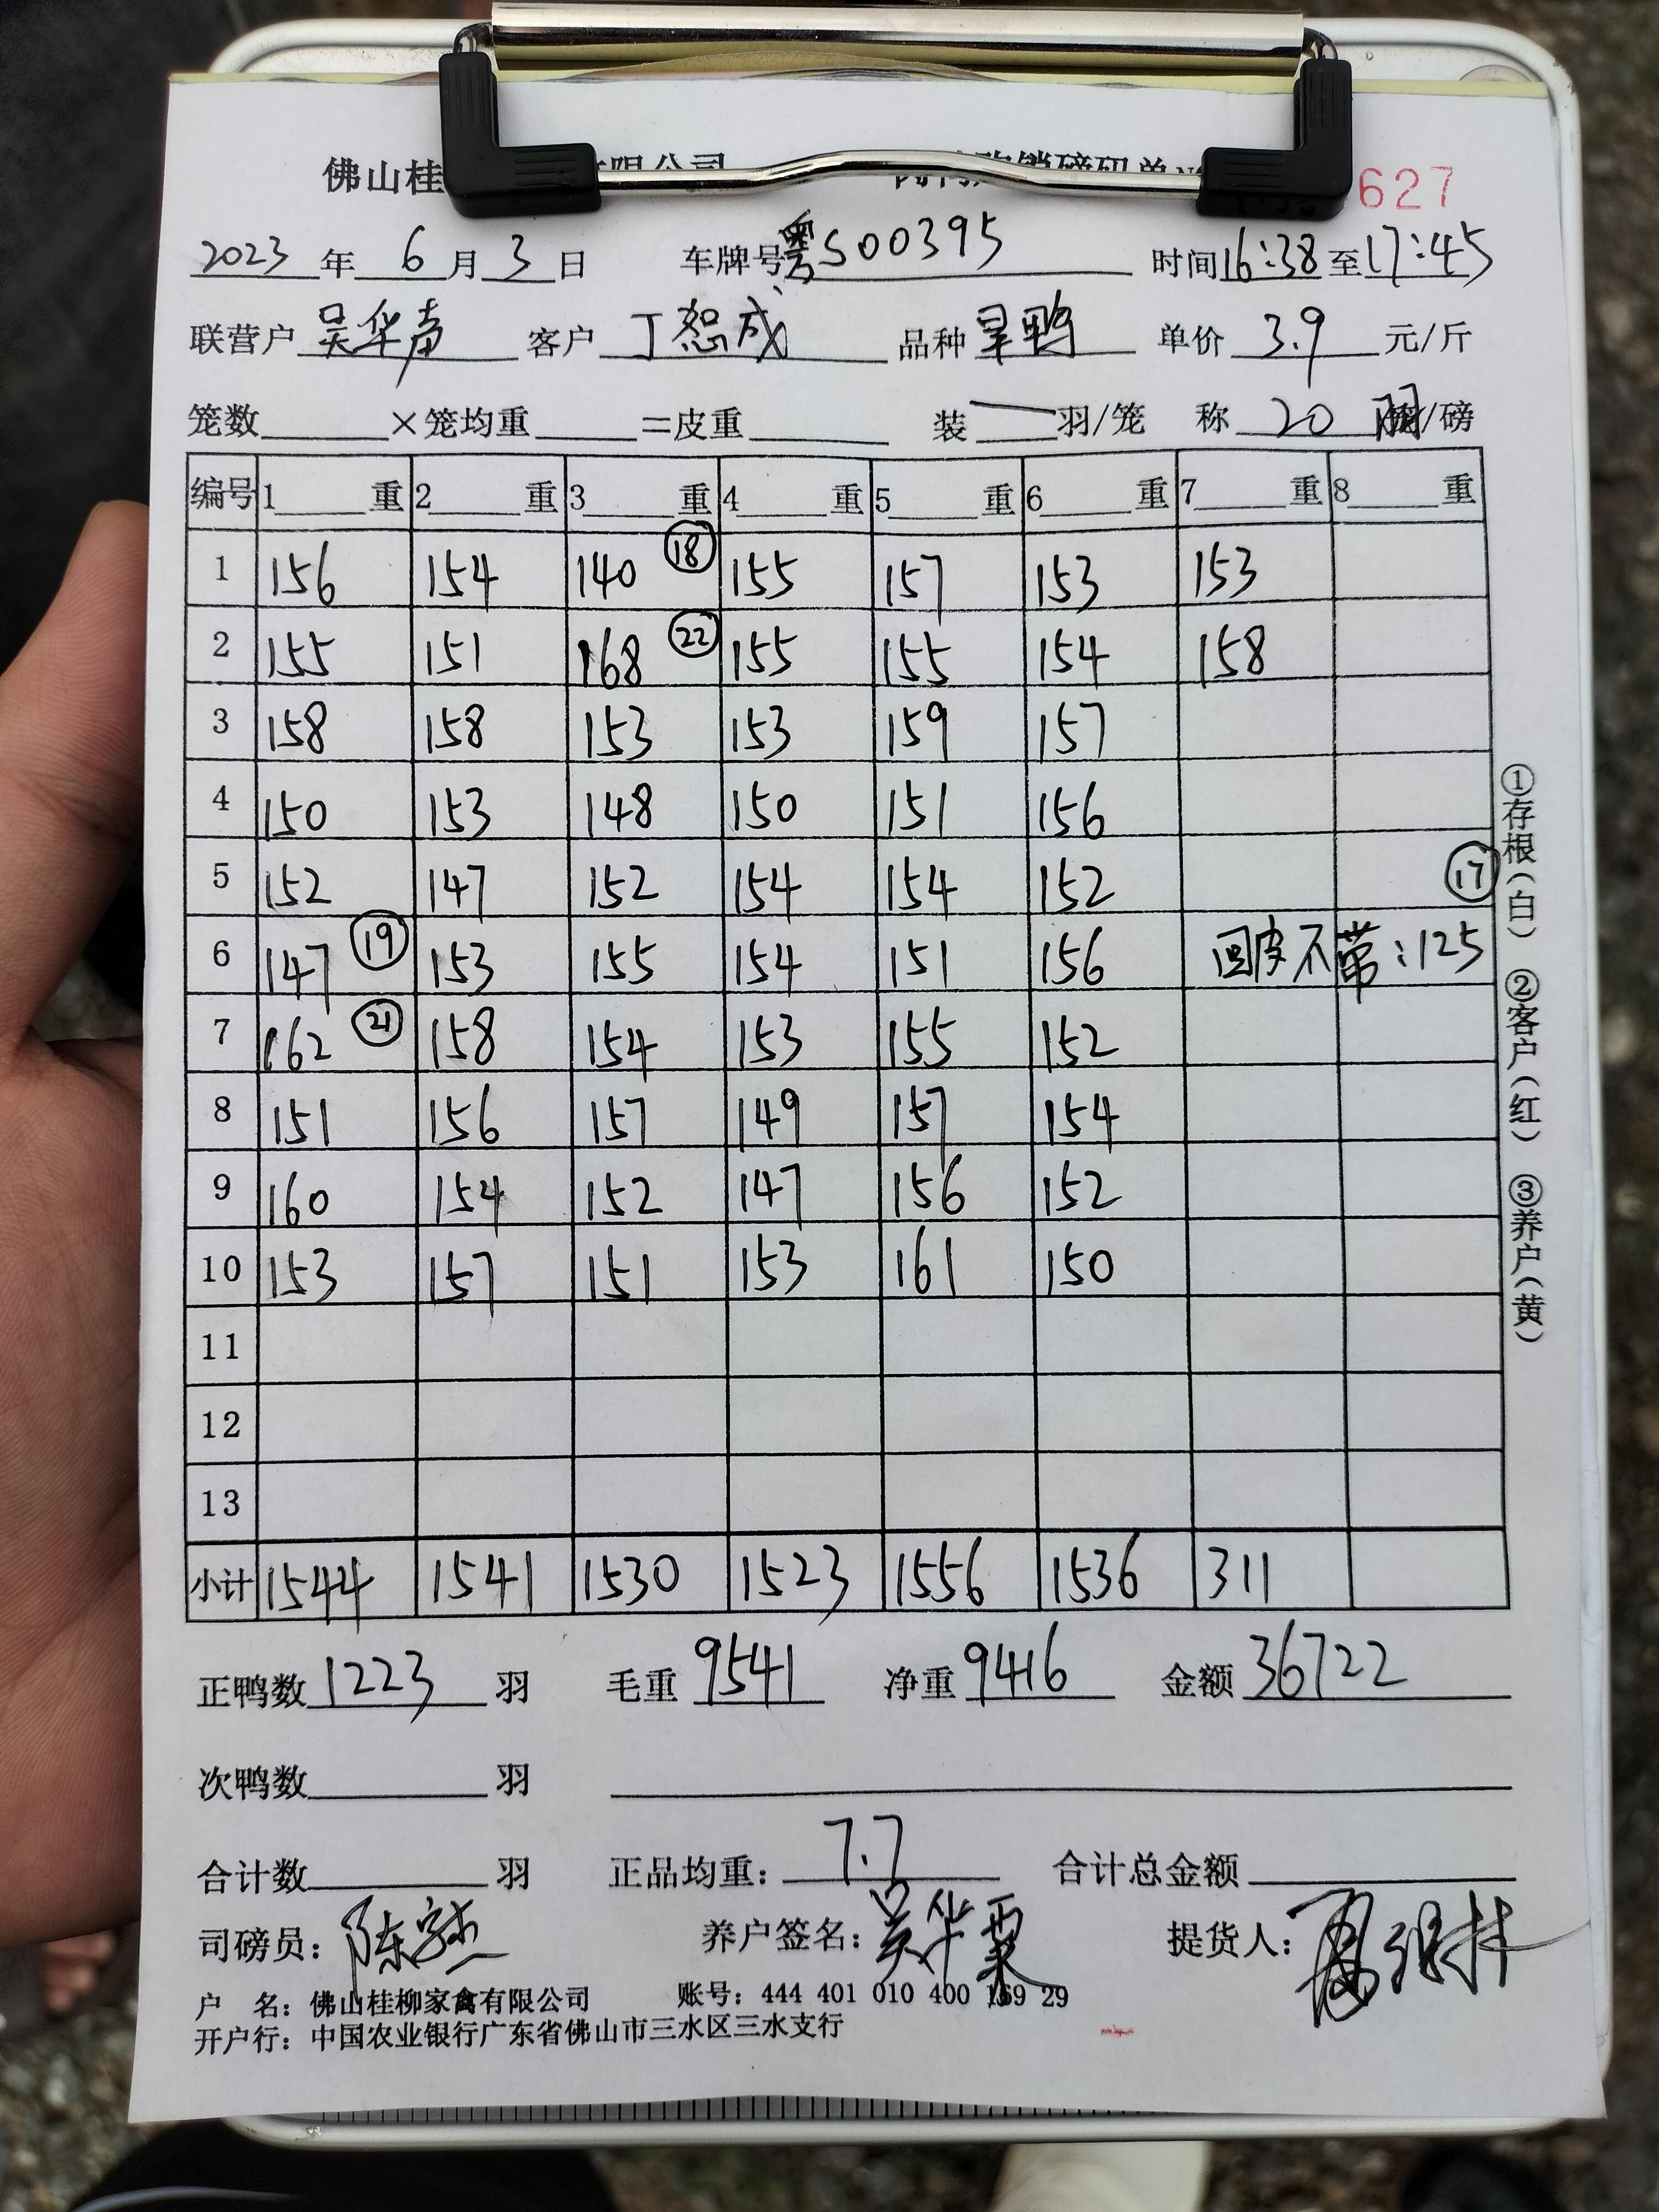 佛山桂 有限公司 销磅码单 627
2023年 6月 3日 车牌号粤S00395 时间16:38至17:45
联营户 吴华声 客户 丁恕成 品种 旱鸭 单价 3.9 元/斤
笼数 ×笼均重 =皮重 装 羽/笼 称 20 /磅
编号 1 重 2 重 3 重 4 重 5 重 6 重 7 重 8 重
1 156 154 140 ⑱ 155 157 153 153
2 155 151 168 ㉒ 155 155 154 158
3 158 158 153 153 159 157
4 150 153 148 150 151 156
5 152 147 152 154 154 152 ⑰
6 147 ⑲ 153 155 154 151 156 回皮不带:125
7 162 ㉑ 158 154 153 155 152
8 151 156 157 149 157 154
9 160 154 152 147 156 152
10 153 157 151 153 161 150
11
12
13
小计 1544 1541 1530 1523 1556 1536 311
①存根(白) ②客户(红) ③养户(黄)
正鸭数 1223 羽 毛重 9541 净重 9416 金额 36722
次鸭数 羽
合计数 羽 正品均重: 7.7 合计总金额
司磅员: 养户签名: 吴华 提货人:
户 名: 佛山桂柳家禽有限公司 账号: 444 401 010 400 169 29
开户行: 中国农业银行广东省佛山市三水区三水支行